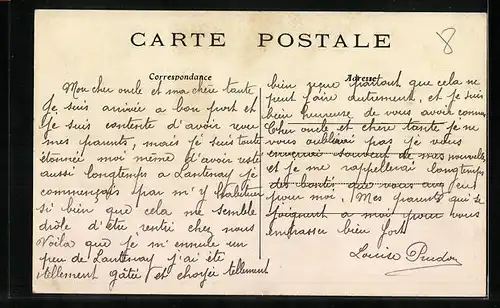 CARTE POSTALE
8
Correspondance
Adresse
Mon cher oncle et ma chère tante
Je suis arrivée a bon port et
je suis contente d'avoir revu
mes parents, mais je suis toute
étonnée moi même d'avoir resté
aussi longtemps a Lantenay je
commençais par m'y habituer
si bien que cela me semble
drôle d'être rentré chez nous
Voila que je m'ennuie un
peu de Lantenay j'ai été
tellement gâtée et choyée tellement
bien vue partout que cela ne
peut faire autrement, et je suis
bein heureuse de vous avoir connu
Cher oncle et chère tante je ne
vous oublierai pas je vous
enverrai souvent de mes nouvelles
et je me rappellerai longtemps
des bontés que vous avez eu
pour moi. Mes parents qui se
joignent a moi pour vous
embrasser bien fort
Louise Prudon